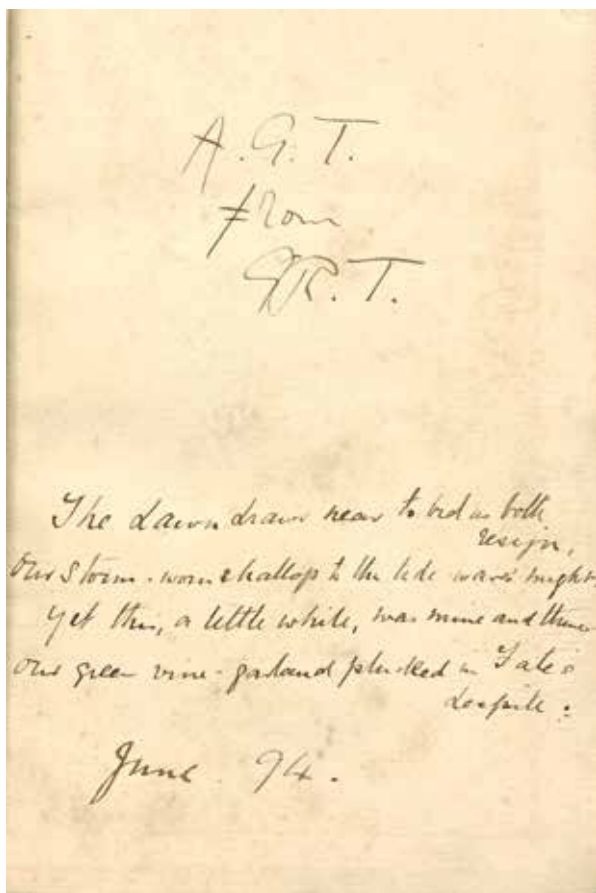 A. G. T.
from
G R. T.
The dawn draws near to bid us both
resign,
Our storm-worn shallop to the tide wave's might,
Yet this, a little while, was mine and thine
Our green vine-garland plucked in Fate's
despite:
June 94.